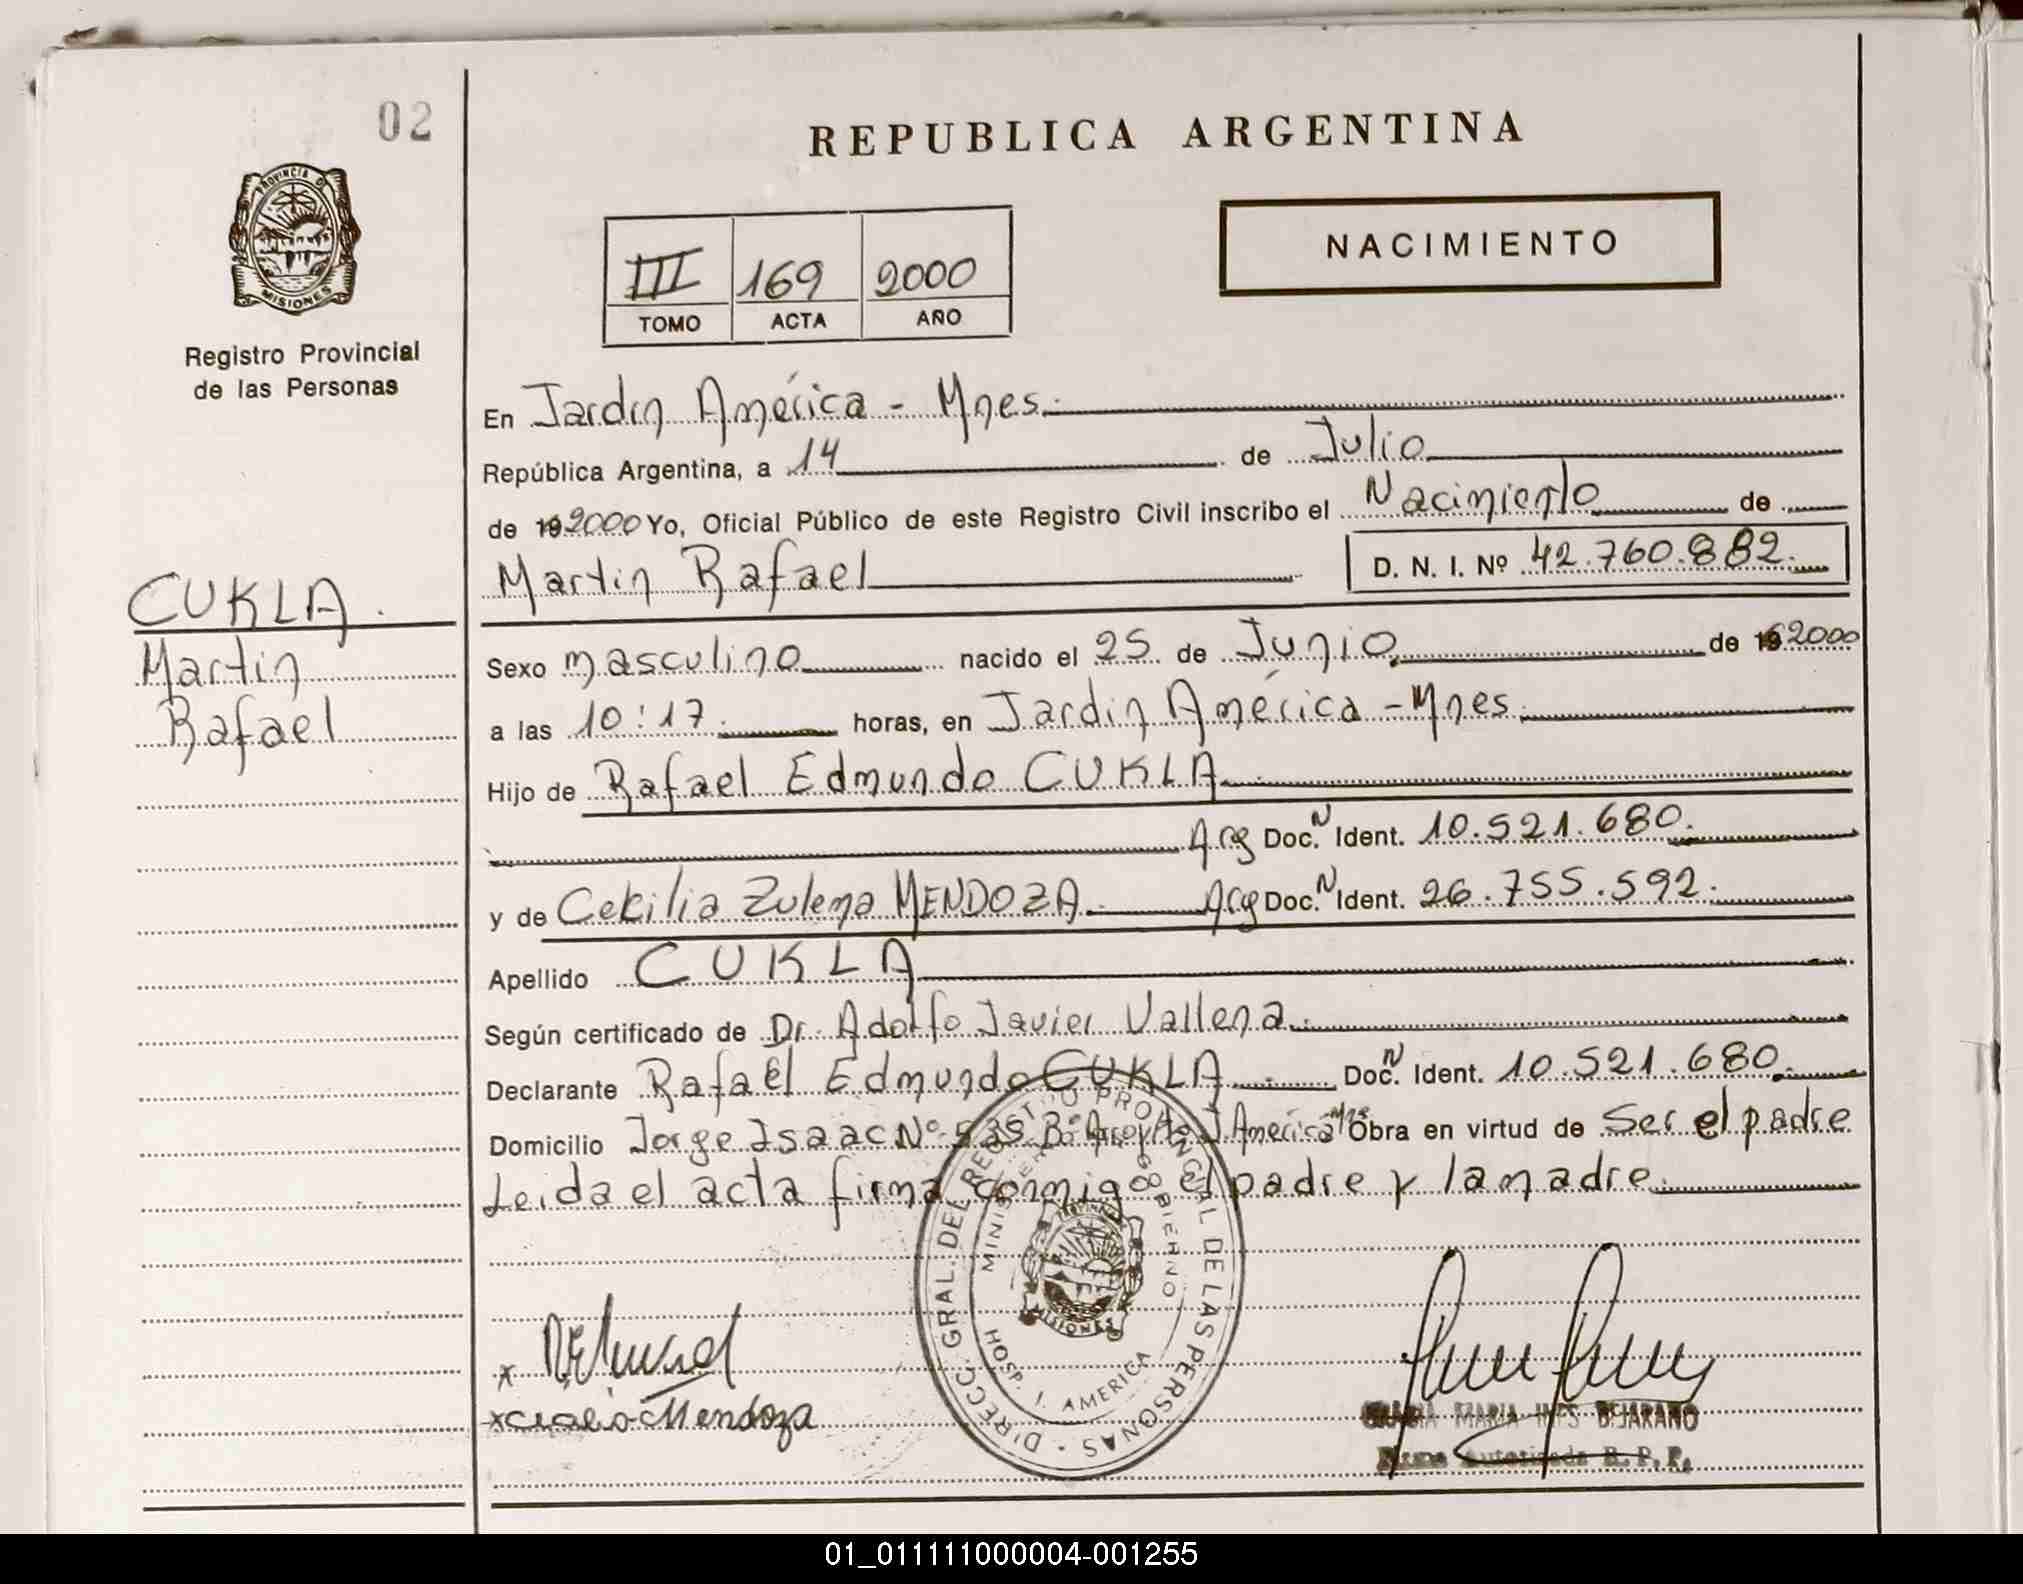 02
PROVINCIA DE
MISIONES
Registro Provincial
de las Personas
CUKLA.
Martin
Rafael
REPUBLICA ARGENTINA
NACIMIENTO
III 169 2000
TOMO ACTA AÑO
En Jardin América - Mnes.
República Argentina, a 14 de Julio
de 19 2000 Yo, Oficial Público de este Registro Civil inscribo el Nacimiento de
Martin Rafael D. N. I. Nº 42.760.882.
Sexo masculino nacido el 25 de Junio de 19 2000
a las 10:17. horas, en Jardin América - Mnes.
Hijo de Rafael Edmundo CUKLA
Arg Doc. N Ident. 10.521.680.
y de Cekilia Zulema MENDOZA Arg Doc. N Ident. 26.755.592.
Apellido CUKLA
Según certificado de Dr. Adolfo Javier Vallena
Declarante Rafael Edmundo CUKLA Doc. N Ident. 10.521.680.
Domicilio Jorge Isaac Nº 535 Bº Arroyito J. América Mnes Obra en virtud de Ser el padre
Leida el acta firma conmigo el padre y la madre.
DIRECC. GRAL. DEL REGISTRO PROVINCIAL DE LAS PERSONAS
GOBIERNO
HOSP. J. AMERICA
MISIONES
x
x Mendoza
MARIA INES BEJARANO
Firma Autorizada R. P. P.
01_011111000004-001255